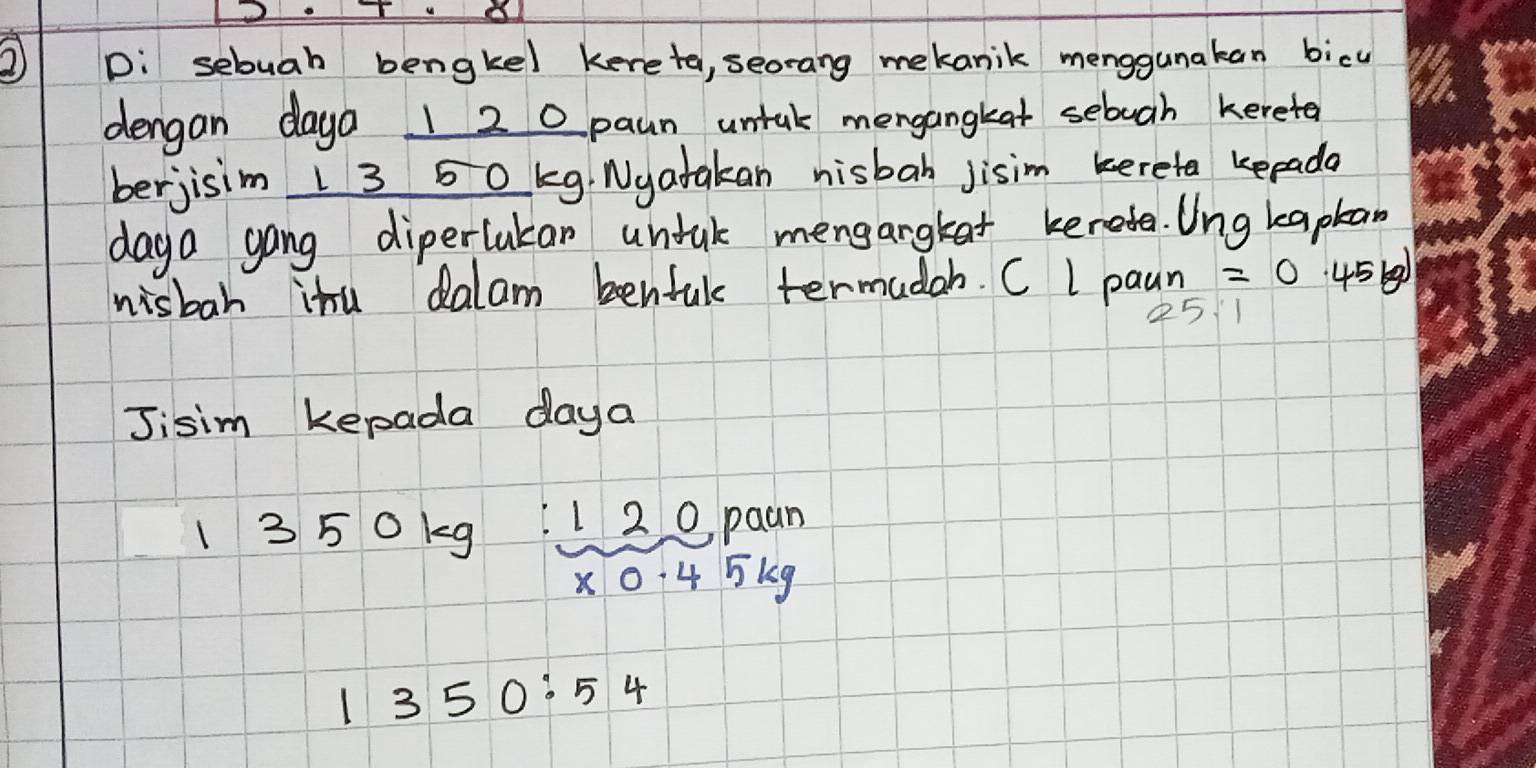 ② Di sebuah bengkel kereta, seorang mekanik menggunakan bicu
dengan daya 120 paun untuk mengangkat sebuah kereta
berjisim 1350 kg. Nyatakan nisbah jisim kereta kepada
daya yang diperlukan untuk mengangkat kereta. Ungkapkan
nisbah itu dalam bentuk termudah. ( 1 paun = 0.45 kg)
25:1
Jisim kepada daya
1350 kg : 120 paun
x 0.45 kg
1350:54